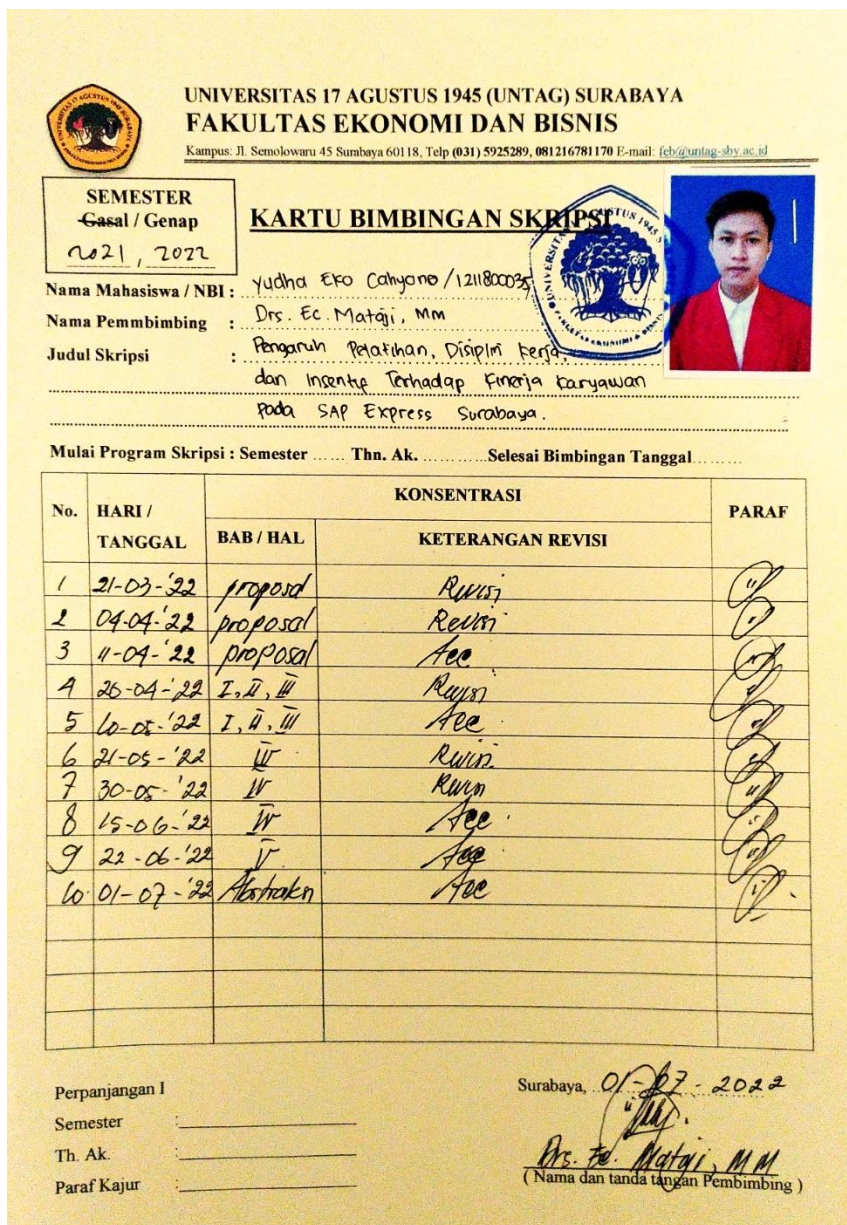 UNIVERSITAS 17 AGUSTUS 1945 (UNTAG) SURABAYA
FAKULTAS EKONOMI DAN BISNIS
Kampus: Jl. Semolowaru 45 Surabaya 60118, Telp (031) 5925289, 081216781170 E-mail: feb@untag-sby.ac.id
SEMESTER
Gasal / Genap
2021, 2022
KARTU BIMBINGAN SKRIPSI
Nama Mahasiswa / NBI : Yudha Eko Cahyono / 1211800035
Nama Pemmbimbing : Drs. Ec. Mataji, MM
Judul Skripsi : Pengaruh Pelatihan, Disiplin Kerja,
dan Insentif Terhadap Kinerja Karyawan
Pada SAP Express Surabaya.
Mulai Program Skripsi : Semester ...... Thn. Ak. ............Selesai Bimbingan Tanggal.........
No. HARI / TANGGAL KONSENTRASI PARAF
BAB / HAL KETERANGAN REVISI
1 21-03-'22 proposal Revisi
2 04-04-'22 proposal Revisi
3 11-04-'22 proposal Acc
4 26-04-'22 I, II, III Revisi
5 10-05-'22 I, II, III Acc
6 21-05-'22 Revisi
7 30-05-'22 IV Revisi
8 15-06-'22 IV Acc
9 22-06-'22 V Acc
10 01-07-'22 Abstrakn Acc
Perpanjangan I
Semester :
Th. Ak. :
Paraf Kajur :
Surabaya, 01-07-2022
Drs. Ec. Mataji, MM
( Nama dan tanda tangan Pembimbing )